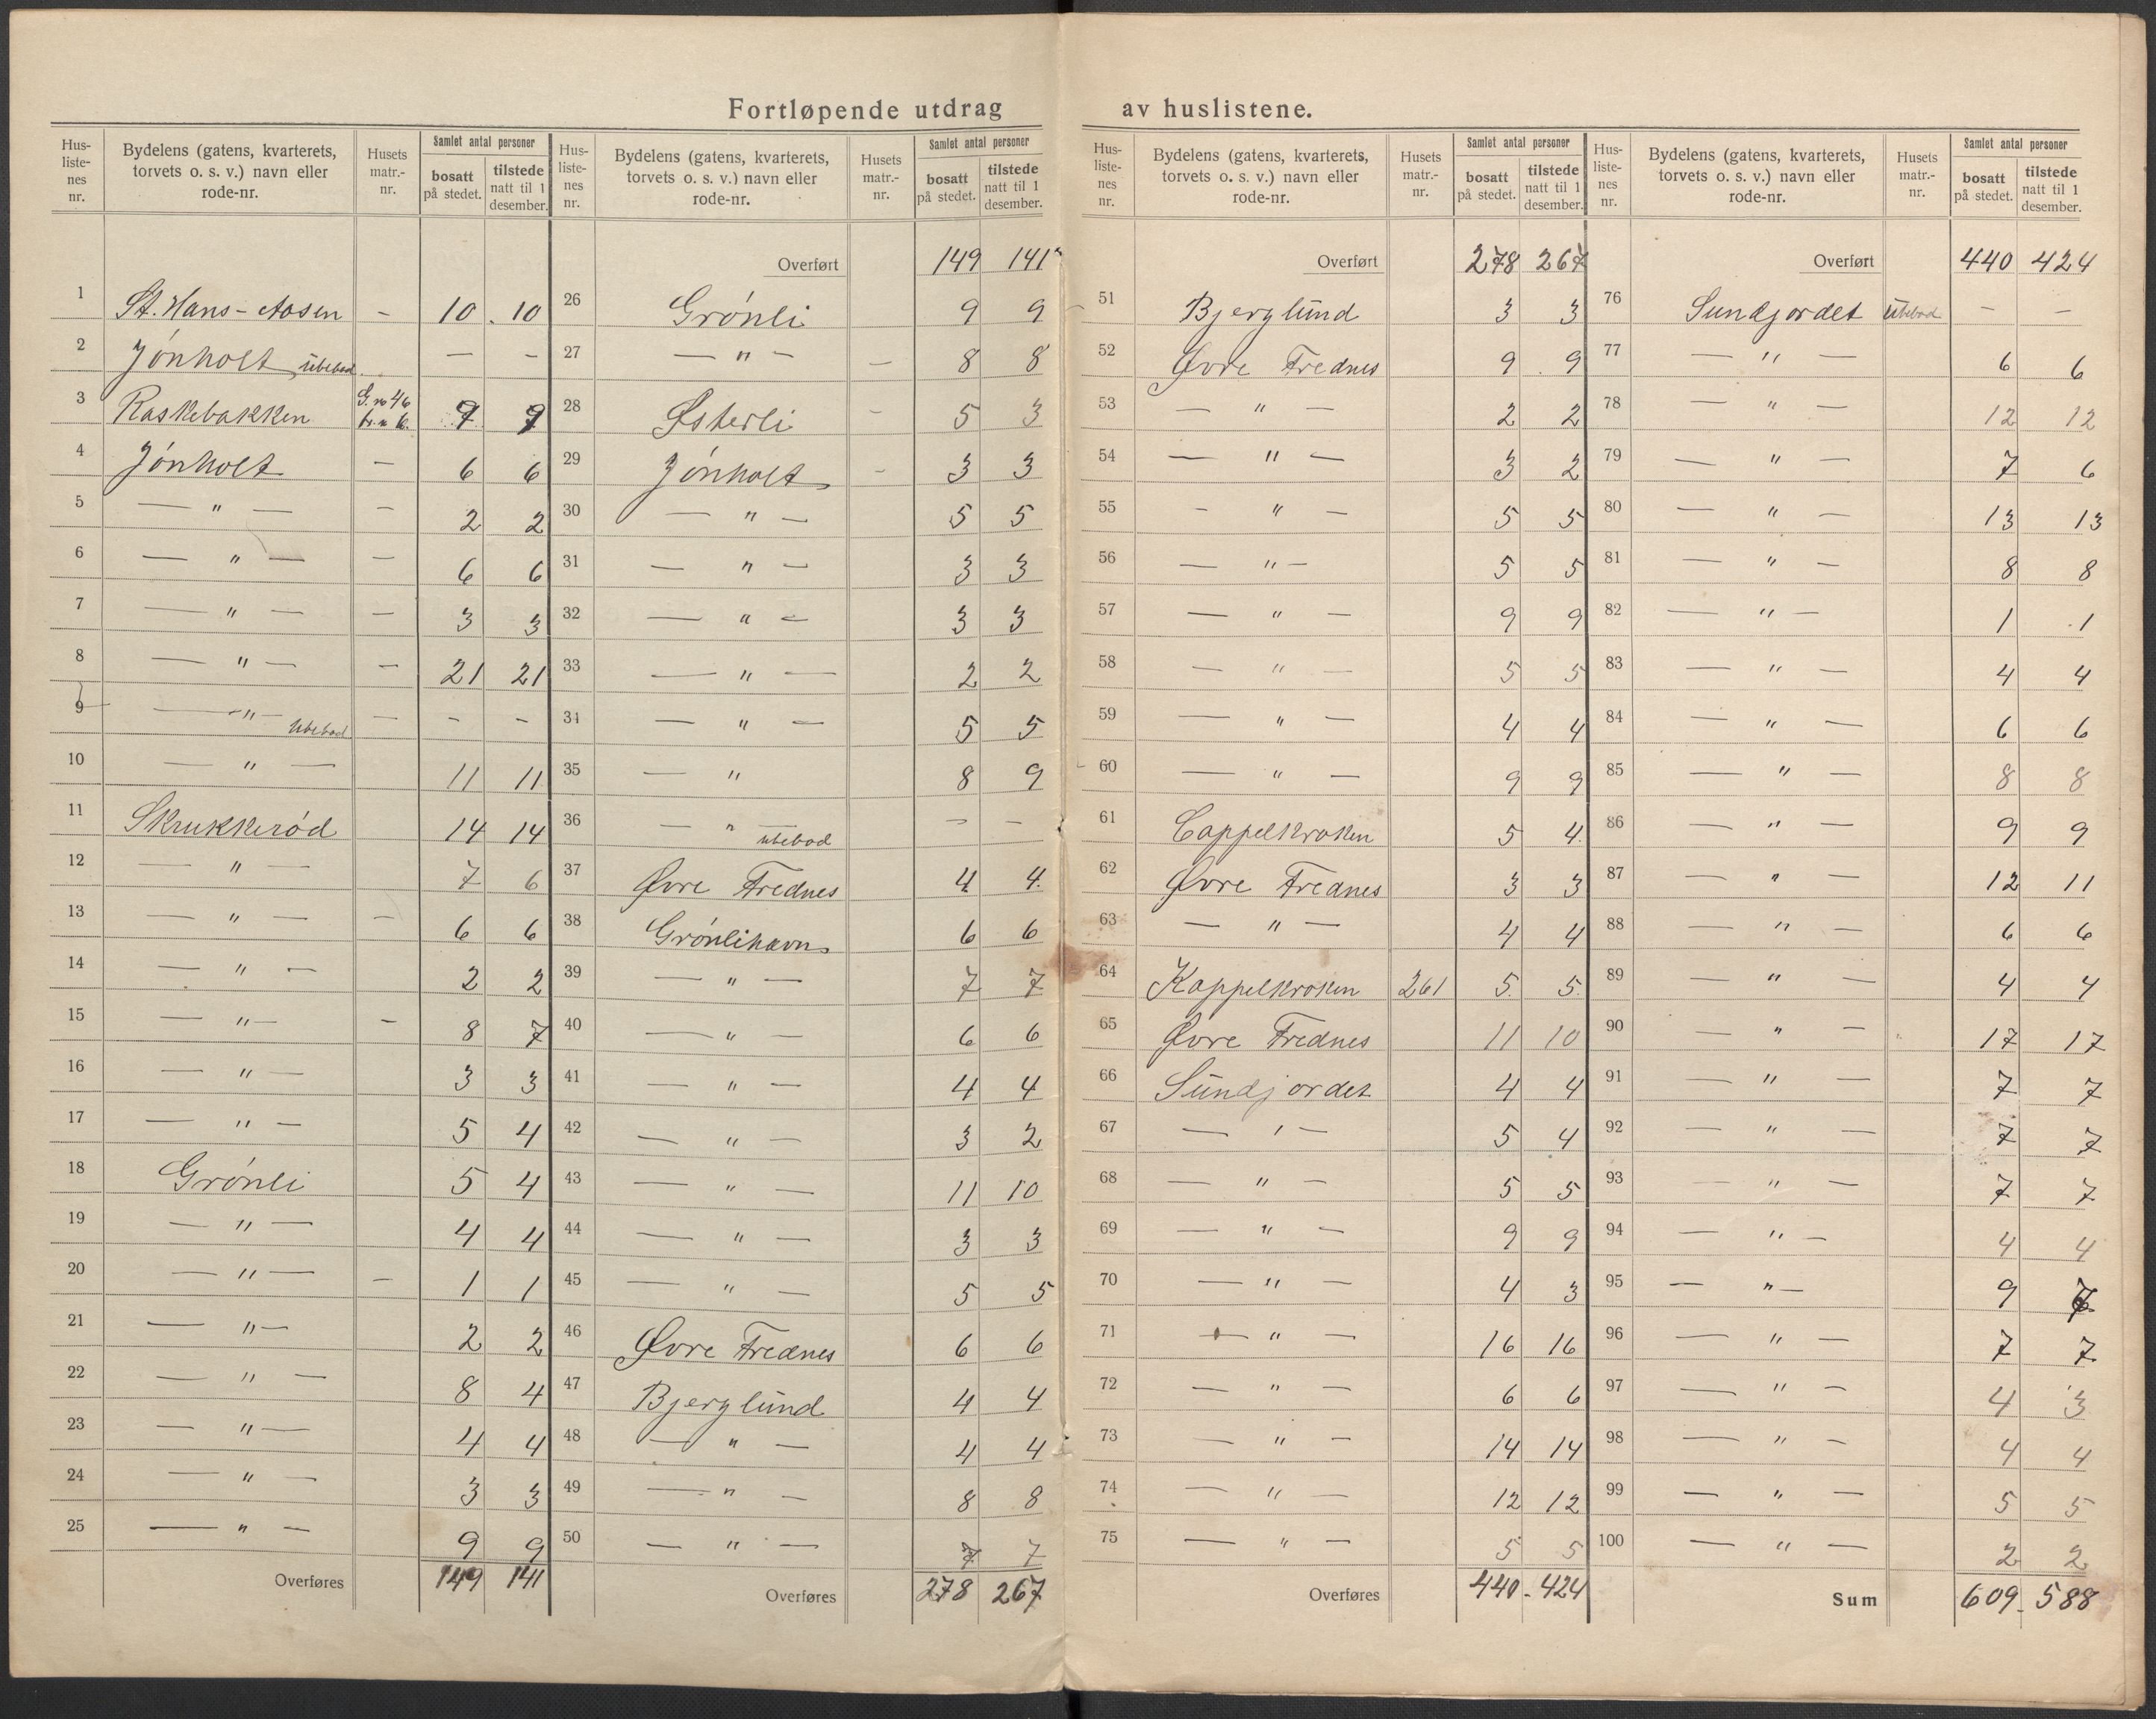 Fortløpende utdrag av huslistene.
Hus-listenes nr. | Bydelens (gatens, kvarterets, torvets o. s. v.) navn eller rode-nr. | Husets matr.-nr. | Samlet antal personer | bosatt på stedet. | tilstede natt til 1 desember.
1 St. Hans-Aasen - 10 10
2 Jönholt, ubebod. - -
3 Raskebakken G. no 46 br. n 6. 9 9
4 Jönholt - 6 6
5 — " — - 2 2
6 — " — - 6 6
7 — " — - 3 3
8 — " — - 21 21
9 — " — Ubebod - - -
10 — " — 11 11
11 Skrukkerød 14 14
12 — " — 7 6
13 — " — - 6 6
14 — " — 2 2
15 — " — - 8 7
16 — " — 3 3
17 — " — 5 4
18 Grönli 5 4
19 — " — 4 4
20 — " — - 1 1
21 — " — 2 2
22 — " — 8 4
23 — " — 4 4
24 — " — 3 3
25 — " — 9 9
Overføres 149 141
Hus-listenes nr. | Bydelens (gatens, kvarterets, torvets o. s. v.) navn eller rode-nr. | Husets matr.-nr. | Samlet antal personer | bosatt på stedet. | tilstede natt til 1 desember.
Overført 149 141
26 Grönli 9 9
27 — " — - 8 8
28 Østerli - 5 3
29 Jönholt - 3 3
30 — " — 5 5
31 — " — 3 3
32 — " — 3 3
33 — " — 2 2
34 — " — 5 5
35 — " 8 9
36 — " — ubebod - -
37 Øvre Frednes 4 4.
38 Grönlihavn 6 6
39 — " — 7 7
40 — " — 6 6
41 — " — 4 4
42 — " — 3 2
43 — " — 11 10
44 — " — 3 3
45 — " — 5 5
46 Øvre Frednes 6 6
47 Bjerglund 4 4
48 — " — 4 4
49 — " — 8 8
50 — " — 7 7
Overføres 278 267
Hus-listenes nr. | Bydelens (gatens, kvarterets, torvets o. s. v.) navn eller rode-nr. | Husets matr.-nr. | Samlet antal personer | bosatt på stedet. | tilstede natt til 1 desember.
Overført 278 267
51 Bjerglund 3 3
52 Øvre Frednes 9 9
53 — " — 2 2
54 — " — 3 2
55 - " — 5 5
56 — " — 5 5
57 — " — 9 9
58 — " — 5 5
59 — " — 4 4
60 — " — 9 9
61 Cappelkroken 5 4.
62 Øvre Frednes 3 3
63 — " — 4 4
64 Kappelkroken 261 5. 5.
65 Øvre Frednes 11 10
66 Sundjordet 4 4
67 — ' — 5 4
68 — " — 5 5
69 — " — 9 9
70 — " — 4 3
71 — " — 16 16
72 — " — 6 6
73 — " — 14 14
74 — " — 12 12
75 — " — 5 5
Overføres 440 - 424
Hus-listenes nr. | Bydelens (gatens, kvarterets, torvets o. s. v.) navn eller rode-nr. | Husets matr.-nr. | Samlet antal personer | bosatt på stedet. | tilstede natt til 1 desember.
Overført 440 424
76 Sundjordet Ubebod - -
77 — " — 6 6
78 — " — 12 12
79 — " — 7 6
80 — " — 13 13
81 — " — 8 8
82 — " — 1 1
83 — " — 4 4
84 — " — 6 6
85 — " — 8 8
86 — " — 9 9
87 — " — 12 11
88 — " — 6 6
89 — " — 4 4
90 — " — 17 17
91 — " — 7 7
92 — " — 7 7
93 — " — 7 7
94 — " — 4 4
95 — " — 9
96 — " — 7 7
97 — " — 4 3
98 — " — 4 4
99 — " — 5 5
100 — " — 2 2
Sum 609 - 588